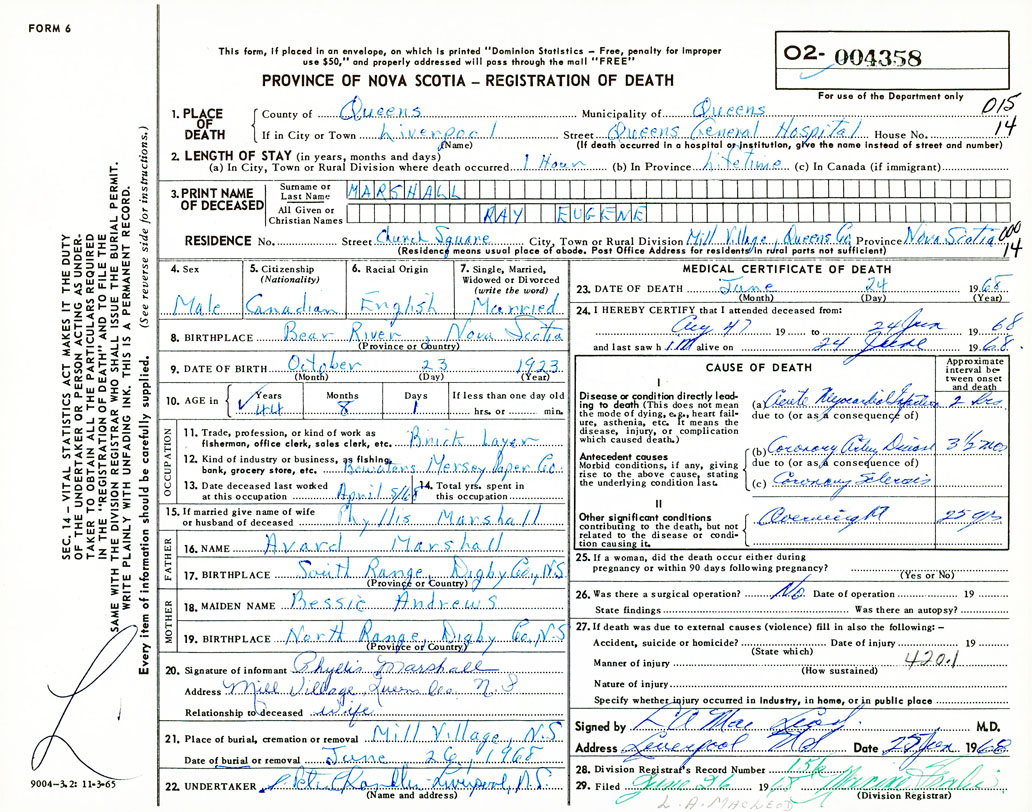 FORM 6
This form, if placed in an envelope, on which is printed "Dominion Statistics – Free, penalty for improper
use $50," and properly addressed will pass through the mail "FREE"
PROVINCE OF NOVA SCOTIA – REGISTRATION OF DEATH
02- 004358
For use of the Department only
015
14
1. PLACE OF DEATH
County of Queens Municipality of Queens
If in City or Town Liverpool Street Queens General Hospital House No.
(Name) (If death occurred in a hospital or institution, give the name instead of street and number)
2. LENGTH OF STAY (in years, months and days)
(a) In City, Town or Rural Division where death occurred 1 Hour (b) In Province Lifetime (c) In Canada (if immigrant)
3. PRINT NAME OF DECEASED
Surname or Last Name MARSHALL
All Given or Christian Names RAY EUGENE
RESIDENCE No. Street Church Square City, Town or Rural Division Mill Village, Queens Co. Province Nova Scotia
(Residence means usual place of abode. Post Office Address for residents in rural parts not sufficient)
000
14
4. Sex
Male
5. Citizenship
(Nationality)
Canadian
6. Racial Origin
English
7. Single, Married,
Widowed or Divorced
(write the word)
Married
8. BIRTHPLACE Bear River, Nova Scotia
(Province or Country)
9. DATE OF BIRTH October 23 1923
(Month) (Day) (Year)
10. AGE in
Years Months Days If less than one day old
44 8 1 hrs. or min.
OCCUPATION
11. Trade, profession, or kind of work as
fisherman, office clerk, sales clerk, etc. Brick Layer
12. Kind of industry or business, as fishing,
bank, grocery store, etc. Bowaters Mersey Paper Co.
13. Date deceased last worked
at this occupation April 5/68
14. Total yrs. spent in
this occupation
15. If married give name of wife
or husband of deceased Phyllis Marshall
FATHER
16. NAME Avard Marshall
17. BIRTHPLACE South Range, Digby Co., N.S
(Province or Country)
MOTHER
18. MAIDEN NAME Bessie Andrews
19. BIRTHPLACE North Range, Digby Co., N.S
(Province or Country)
20. Signature of informant Phyllis Marshall
Address Mill Village, Queens Co., N.S
Relationship to deceased wife
21. Place of burial, cremation or removal Mill Village, N.S.
Date of burial or removal June 26, 1968
22. UNDERTAKER Chandler Liverpool, N.S.
(Name and address)
MEDICAL CERTIFICATE OF DEATH
23. DATE OF DEATH June 24 1968
(Month) (Day) (Year)
24. I HEREBY CERTIFY that I attended deceased from:
Aug 47 19 to 24 Jun 1968
and last saw h im alive on 24 June 1968.
CAUSE OF DEATH
Approximate
interval be-
tween onset
and death
I
Disease or condition directly lead-
ing to death (This does not
mean the mode of dying, e.g., heart fail-
ure, asthenia, etc. It means the
disease, injury, or complication
which caused death.)
(a) Acute Myocardial Infarction 2 hrs
due to (or as a consequence of)
Antecedent causes
Morbid conditions, if any, giving
rise to the above cause, stating
the underlying condition last.
(b) Coronary Artery Disease 3½ mo
due to (or as a consequence of)
(c) Coronary Sclerosis
II
Other significant conditions
contributing to the death, but not
related to the disease or condi-
tion causing it.
Overweight 25 yrs
25. If a woman, did the death occur either during
pregnancy or within 90 days following pregnancy?
(Yes or No)
26. Was there a surgical operation? No Date of operation 19
State findings Was there an autopsy?
27. If death was due to external causes (violence) fill in also the following: –
Accident, suicide or homicide? Date of injury 19
(State which)
Manner of injury 420.1
(How sustained)
Nature of injury
Specify whether injury occurred in industry, in home, or in public place
Signed by Mac Leod M.D.
Address Liverpool NS Date 25 Jun 1968
28. Division Registrar's Record Number 156
29. Filed June 26 1968
(Division Registrar)
L. A. MACLEOD
SEC. 14 – VITAL STATISTICS ACT MAKES IT THE DUTY
OF THE UNDERTAKER OR PERSON ACTING AS UNDER-
TAKER TO OBTAIN ALL THE PARTICULARS REQUIRED
IN THE "REGISTRATION OF DEATH" AND TO FILE THE
SAME WITH THE DIVISION REGISTRAR WHO SHALL ISSUE THE BURIAL PERMIT.
WRITE PLAINLY WITH UNFADING INK. THIS IS A PERMANENT RECORD.
Every item of information should be carefully supplied. (See reverse side for instructions.)
9004–3.2: 11-3-65